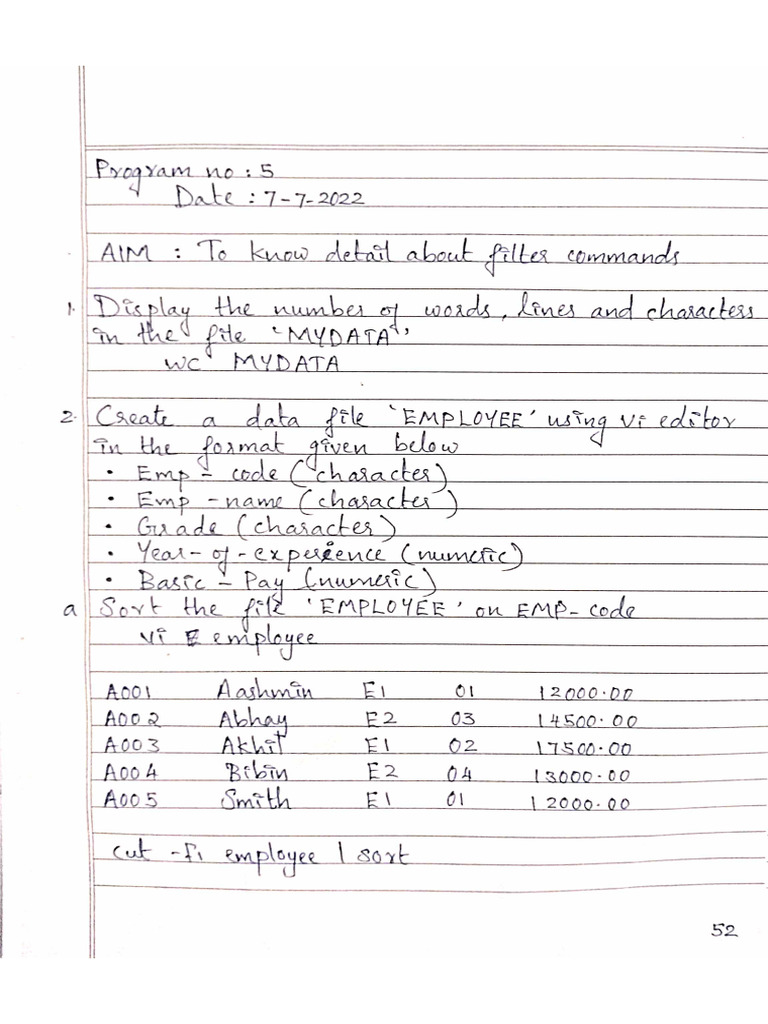 Program no : 5
Date : 7-7-2022
AIM : To know detail about filter commands
1. Display the number of words, lines and characters
in the file 'MYDATA'
wc MYDATA
2. Create a data file 'EMPLOYEE' using vi editor
in the format given below
• Emp - code (character)
• Emp - name (character)
• Grade (character)
• Year-of-experience (numeric)
• Basic - Pay (numeric)
a Sort the file 'EMPLOYEE' on EMP-code
vi employee
A001 Aashmin E1 01 12000.00
A002 Abhay E2 03 14500.00
A003 Akhil E1 02 17500.00
A004 Bibin E2 04 13000.00
A005 Smith E1 01 12000.00
cut -f1 employee | sort
52